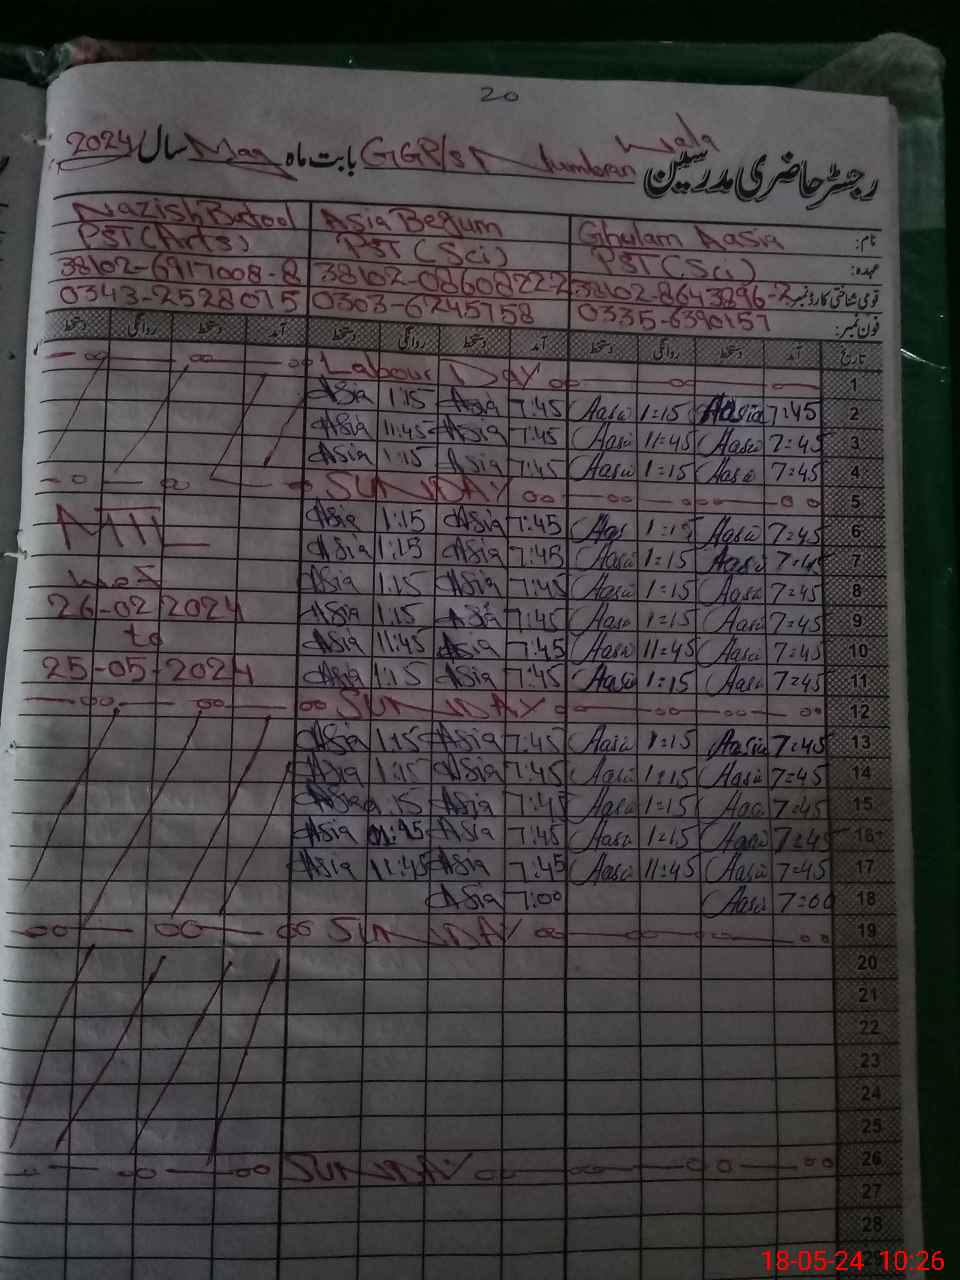 20
رجسٹر حاضری مدرسین GGP/s Jumban wala بابت ماہ May سال 2024
نام: Ghulam Aasia Asia Begum Nazish Batool
عہدہ: PST (Sci) PST (Sci) PST (Arts)
قومی شناختی کارڈ نمبر: 38102-8643896-2 38102-0860822-2 38102-6917008-8
فون نمبر: 0335-6390157 0303-6245758 0343-2528015
تاریخ آمد دستخط روانگی دستخط آمد دستخط روانگی دستخط آمد دستخط روانگی دستخط
1 Labour Day
2 7:45 Aasia 1:15 Aasia 7:45 Asia 1:15 Asia
3 7:45 Aasia 11:45 Aasia 7:45 Asia 11:45 Asia
4 7:45 Aasia 1:15 Aasia 7:45 Asia 1:15 Asia
5 SUNDAY
6 7:45 Aasia 1:15 Aasia 7:45 Asia 1:15 Asia MTL
7 7:45 Aasia 1:15 Aasia 7:45 Asia 1:15 Asia
8 7:45 Aasia 1:15 Aasia 7:45 Asia 1:15 Asia wef
9 7:45 Aasia 1:15 Aasia 7:45 Asia 1:15 Asia 26-02 2024
10 7:45 Aasia 11:45 Aasia 7:45 Asia 11:45 Asia to
11 7:45 Aasia 1:15 Aasia 7:45 Asia 1:15 Asia 25-05-2024
12 SUNDAY
13 7:45 Aasia 1:15 Aasia 7:45 Asia 1:15 Asia
14 7:45 Aasia 1:15 Aasia 7:45 Asia 1:15 Asia
15 7:45 Aasia 1:15 Aasia 7:45 Asia 1:15 Asia
16 7:45 Aasia 1:15 Aasia 7:45 Asia Asia
17 7:45 Aasia 11:45 Aasia 7:45 Asia 11:45 Asia
18 7:00 Aasia 7:00 Asia
19 SUNDAY
20
21
22
23
24
25
26 SUNDAY
27
28
29
18-05-24 10:26